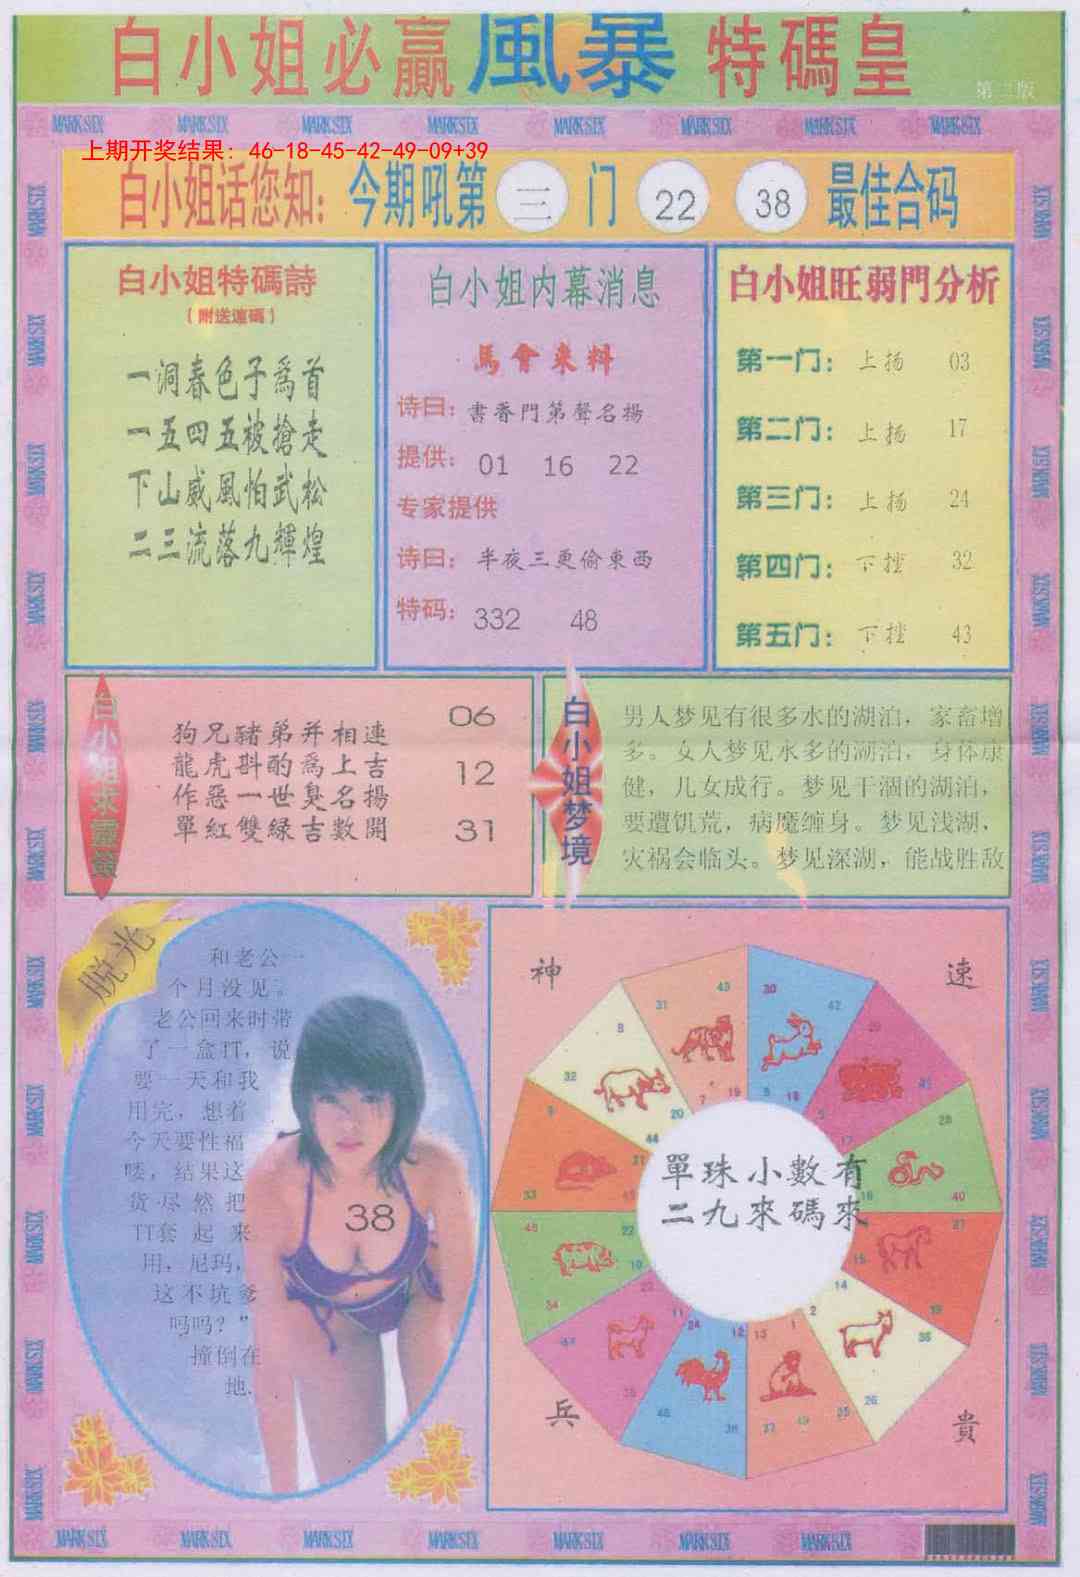 白小姐必贏風暴特碼皇
第二版
MARK SIX MARK SIX MARK SIX MARK SIX MARK SIX MARK SIX MARK SIX MARK SIX
上期开奖结果：46-18-45-42-49-09+39
白小姐话您知：今期吼第 三 门 22 38 最佳合码
白小姐特碼詩
(附送連碼)
一洞春色子爲首
一五四五被搶走
下山威風怕武松
二三流落九輝煌
白小姐内幕消息
馬會來料
诗曰：書香門第聲名揚
提供：01 16 22
专家提供
诗曰：半夜三更偷東西
特码：332 48
白小姐旺弱門分析
第一门：上扬 03
第二门：上扬 17
第三门：上扬 24
第四门：下挫 32
第五门：下挫 43
白小姐求靈簽
狗兄豬弟并相連
龍虎斟酌爲上吉
作惡一世臭名揚
單紅雙緑吉數開
06
12
31
白小姐梦境
男人梦见有很多水的湖泊，家畜增
多。女人梦见水多的湖泊，身体康
健，儿女成行。梦见干涸的湖泊，
要遭饥荒，病魔缠身。梦见浅湖，
灾祸会临头。梦见深湖，能战胜敌
脱光
和老公一
个月没见。
老公回来时带
了一盒TT，说
要一天和我
用完，想着
今天要性福
喽，结果这
货尽然把
TT套起来
用，尼玛，
这不坑爹
吗吗？”
撞倒在
地.
38
神
速
兵
貴
單珠小數有
二九來碼來
31 43 7 19
30 42 6 18
29 41 5 17
28 40 16
27 39 15
14 2 38 26
1 13 37 49 25
12 24 36 48
11 23 35 47
10 22 34 46
9 21 33 45
8 20 32 44
MARK SIX MARK SIX MARK SIX MARK SIX MARK SIX MARK SIX MARK SIX